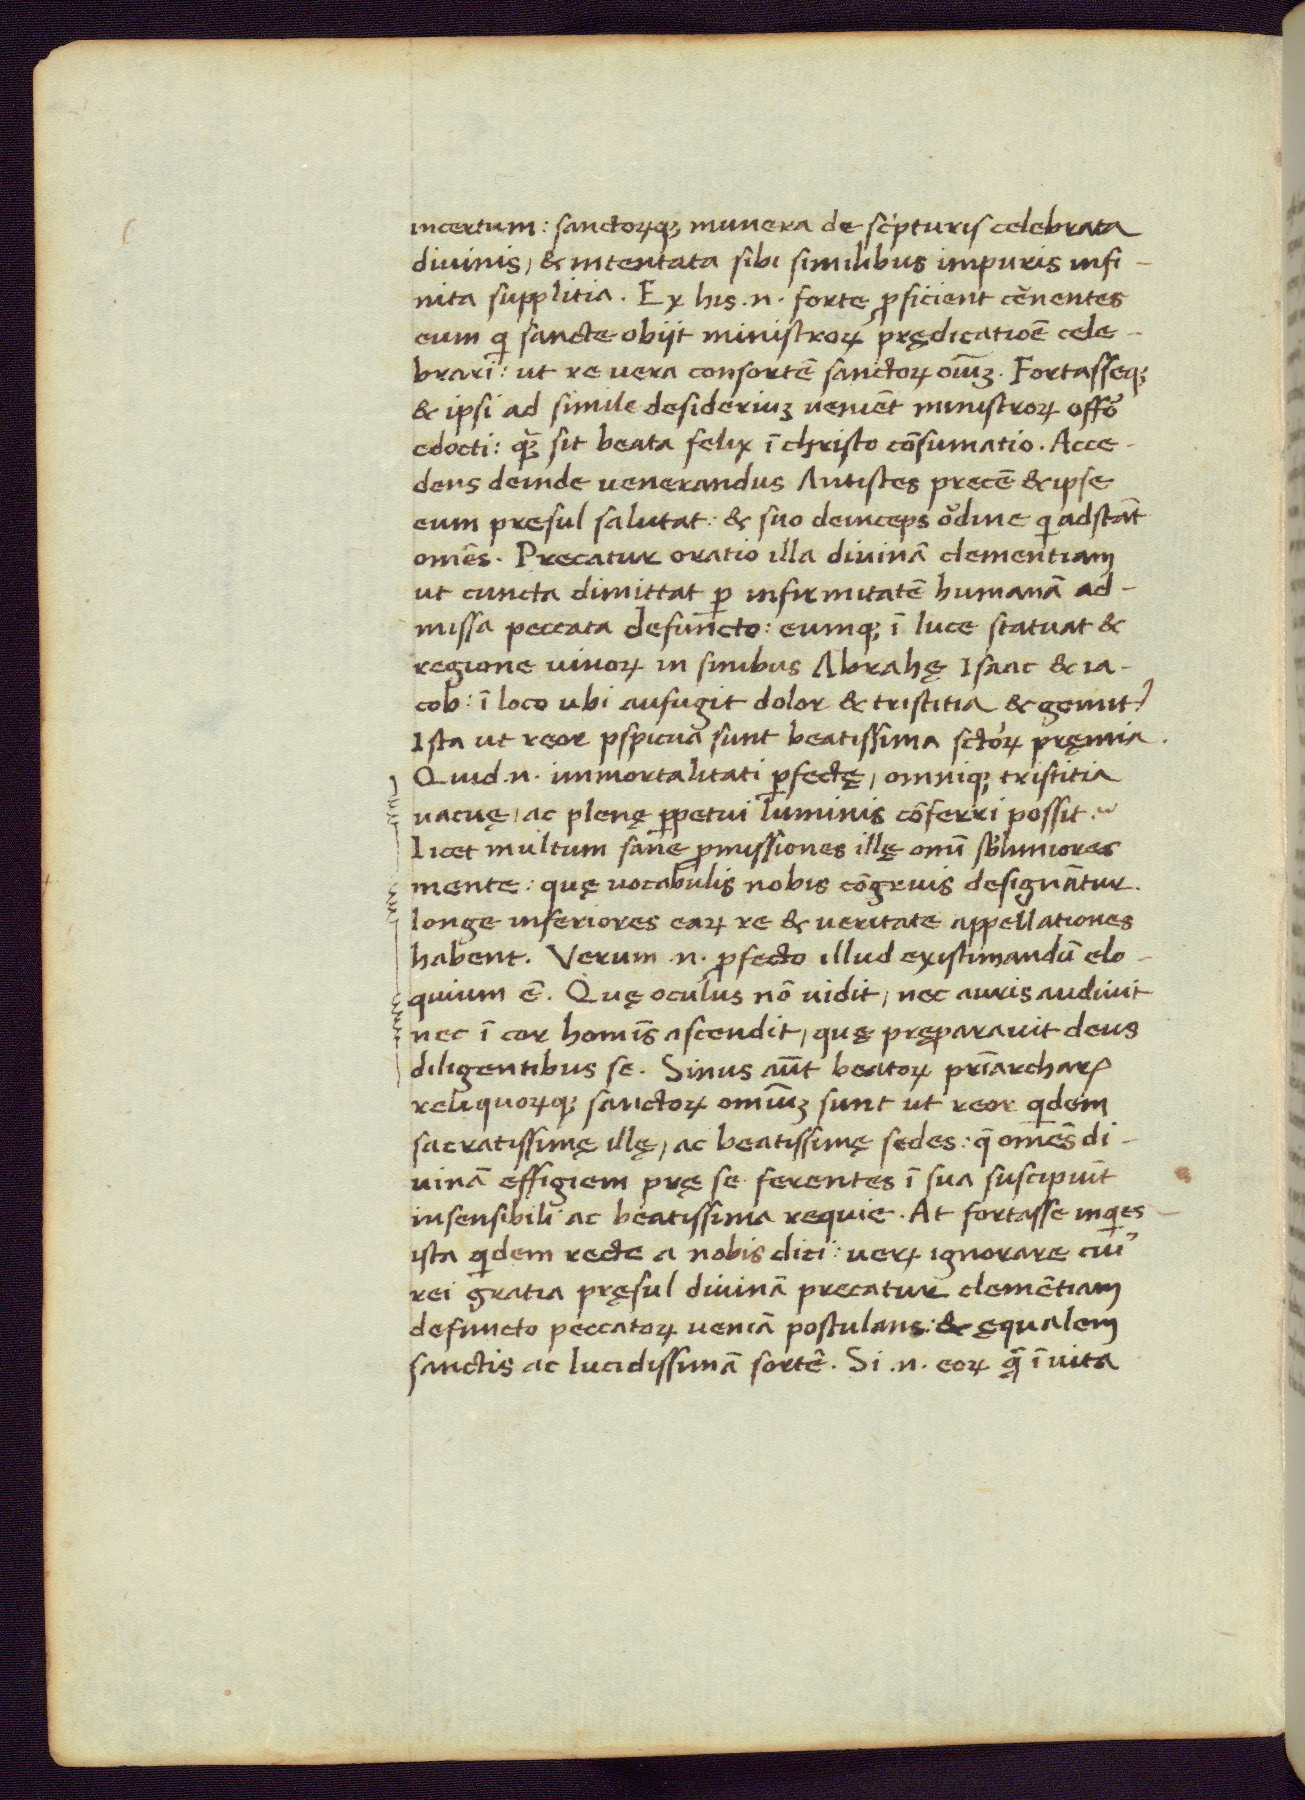 incertum: sanctoꝝqꝫ munera de scͥpturis celebrata
diuinis, & intentata sibi similibus impuris infi-
nita supplitia. Ex his .n. forte ꝓficient cernentes
eum qͥ sancte obijt ministroꝝ prędicatioē cele-
brari: ut re uera consortē sanctoꝝ oīuꝫ. Fortasseqꝫ
& ipsi ad simile desideriuꝫ ueniēt ministroꝝ offō
edocti: qꝫ sit beata felix ī christo cōsumatio. Acce-
dens deinde uenerandus Antistes precē & ipse
eum presul salutat: & suo deinceps oͬdine qͥ adstāt
omēs. Precatur oratio illa diuinā clementiam
ut cuncta dimittat ꝑ infirmitatē humanā ad-
missa peccata defuncto: eumqꝫ ī luce statuat &
regione uiuoꝝ in sinibus Abrahę Isaac & ia-
cob: ī loco ubi aufugit dolor & tristitia & gemitꝰ
Ista ut reor ꝑspicua sunt beatissima sctōꝝ pręmia.
Quid .n. immortalitati ꝑfectę, omniqꝫ tristitia
uacuę, ac plenę ꝑpetui luminis cōferri possit.
Licet multum sane ꝓmissiones illę omī sb̓limiores
mente: quę uocabulis nobis cōgruis designātur.
longe inferiores eaꝝ re & ueritate appellationes
habent. Verum .n. ꝓfecto illud existimandū elo-
quium ē. Quę oculus nō uidit, nec auris audiuit
nec ī cor homīs ascendit, quę pręparauit deus
diligentibus se. Sinus aūt beatoꝝ prīarchaꝝ
reliquoꝝqꝫ sanctoꝝ omīuꝫ sunt ut reor qͥdem
sacratissimę illę, ac beatissimę sedes: q̄ omēs di-
uinā effigiem prę se ferentes ī sua suscipiūt
insensibili ac beatissima requie. At fortasse inqͥes
ista qͥdem recte a nobis dici: ueꝝ ignorare cuiꝰ
rei gratia pręsul diuinā precatur clemētiam
defuncto peccatoꝝ ueniā postulans: & ęqualem
sanctis ac lucidissimā sortē. Si .n. eoꝝ q̄ ī uita